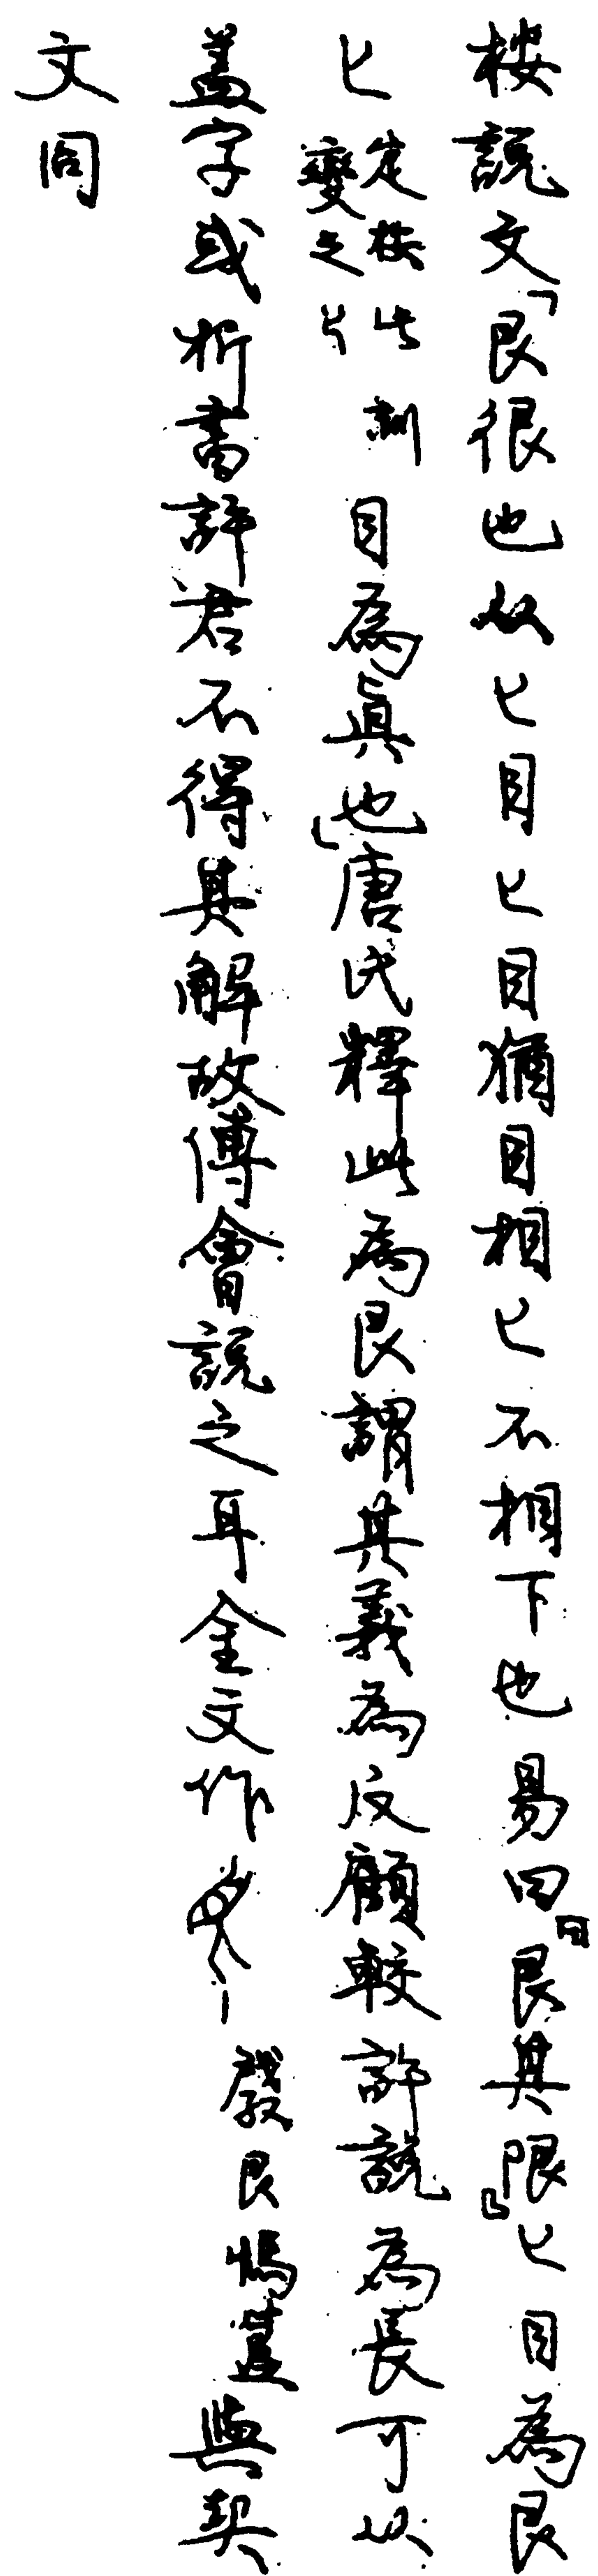 按說文「艮很也从匕目匕目猶目相匕不相下也易曰『艮其限』匕目為艮
匕定按此訓變之匕目為真也」唐氏釋此為艮謂其義為反顧較許說為長可以
蓋字或析書許君不得其解故傅會說之耳金文作 艮 與契
文同